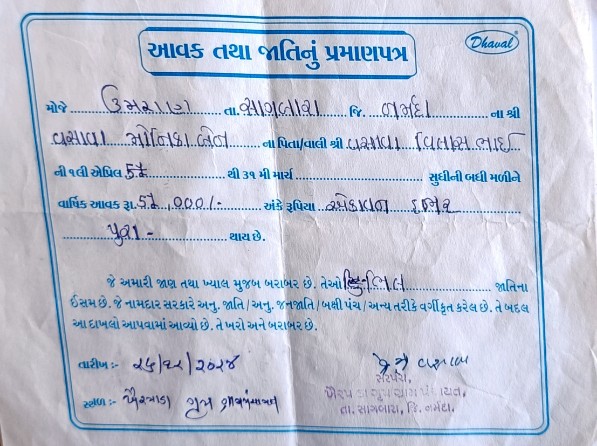 Dhaval
આવક તથા જાતિનું પ્રમાણપત્ર
મોજે ઉમરાણ તા. સાગબારા જિ. નર્મદા ના શ્રી
વસાવા મોનિકા બેન ના પિતા/વાલી શ્રી વસાવા વિલાસ ભાઈ
ની ૧લી એપ્રિલ થી ૩૧ મી માર્ચ સુધીની બધી મળીને
વાર્ષિક આવક રૂા. ,000/- અંકે રૂપિયા એકાવન હજાર
પુરા - થાય છે.
જે અમારી જાણ તથા ખ્યાલ મુજબ બરાબર છે. તેઓ જાતિના
ઈસમ છે. જે નામદાર સરકારે અનુ. જાતિ / અનુ. જનજાતિ / બક્ષી પંચ / અન્ય તરીકે વર્ગીકૃત કરેલ છે. તે બદલ
આ દાખલો આપવામાં આવ્યો છે. તે ખરો અને બરાબર છે.
તારીખ :- /૨૦૨૪
સરપંચ,
સ્થળ :- ગ્રુપ ગ્રામપંચાયત
ગ્રુપ ગ્રામ પંચાયત,
તા. સાગબારા, જિ. નર્મદા.